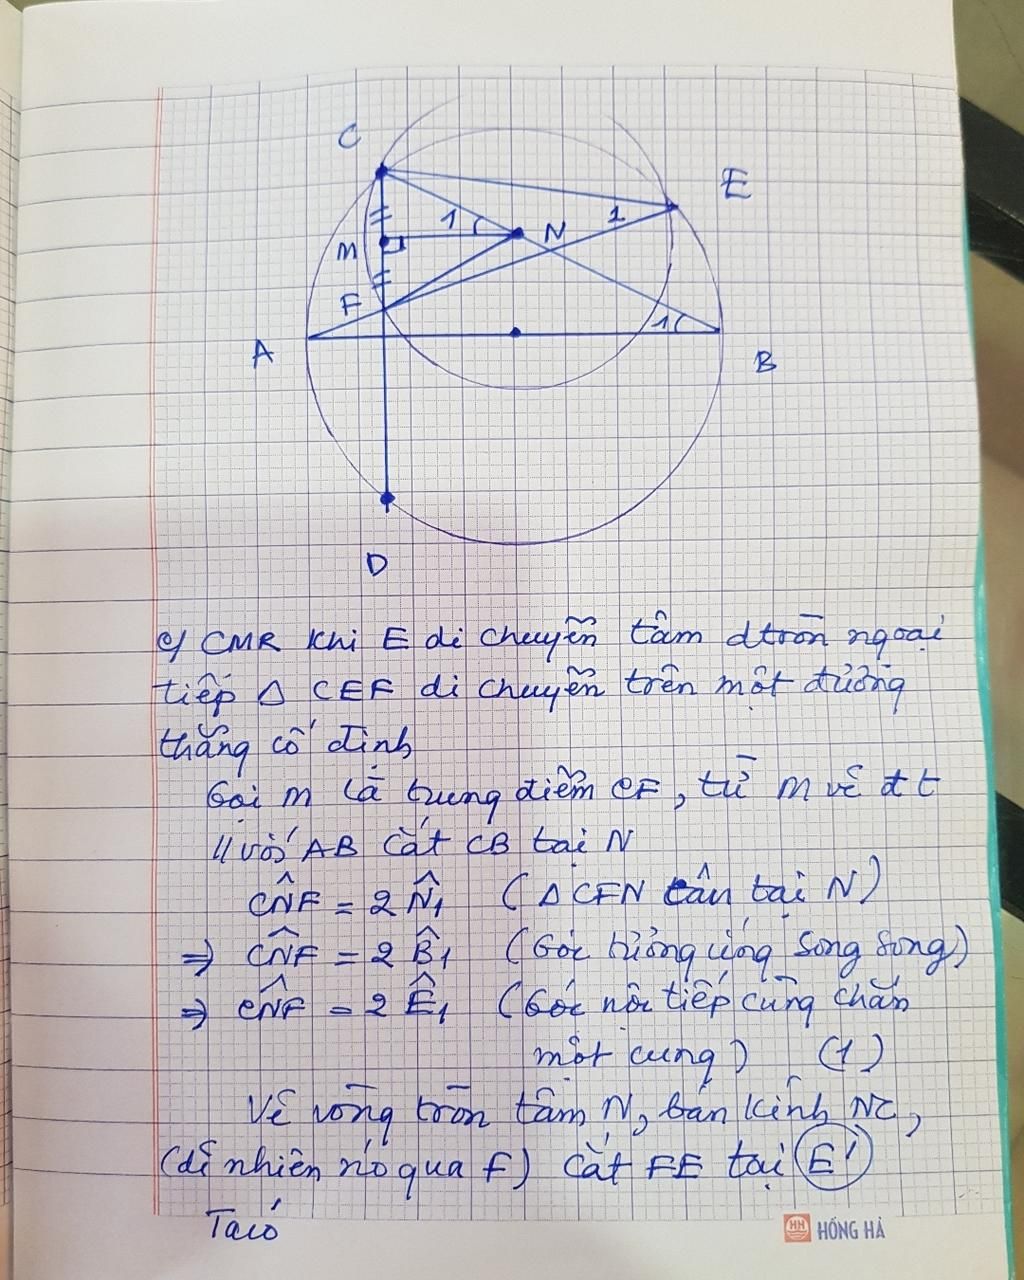 C
E
1
1
M
N
F
1
A
B
D
c/ CMR khi E di chuyển tâm đtròn ngoại
tiếp Δ CEF di chuyển trên một đường
thẳng cố định
Gọi M là trung điểm CF, từ M vẽ đt
// với AB cắt CB tại N
CN̂F = 2 N̂₁ (Δ CFN cân tại N)
=> CN̂F = 2 B̂₁ (Góc tương ứng song song)
=> CN̂F = 2 Ê₁ (Góc nội tiếp cùng chắn
một cung) (1)
Vẽ vòng tròn tâm N, bán kính NC,
(dĩ nhiên nó qua F) cắt FE tại E'
Ta có
HH HỒNG HÀ